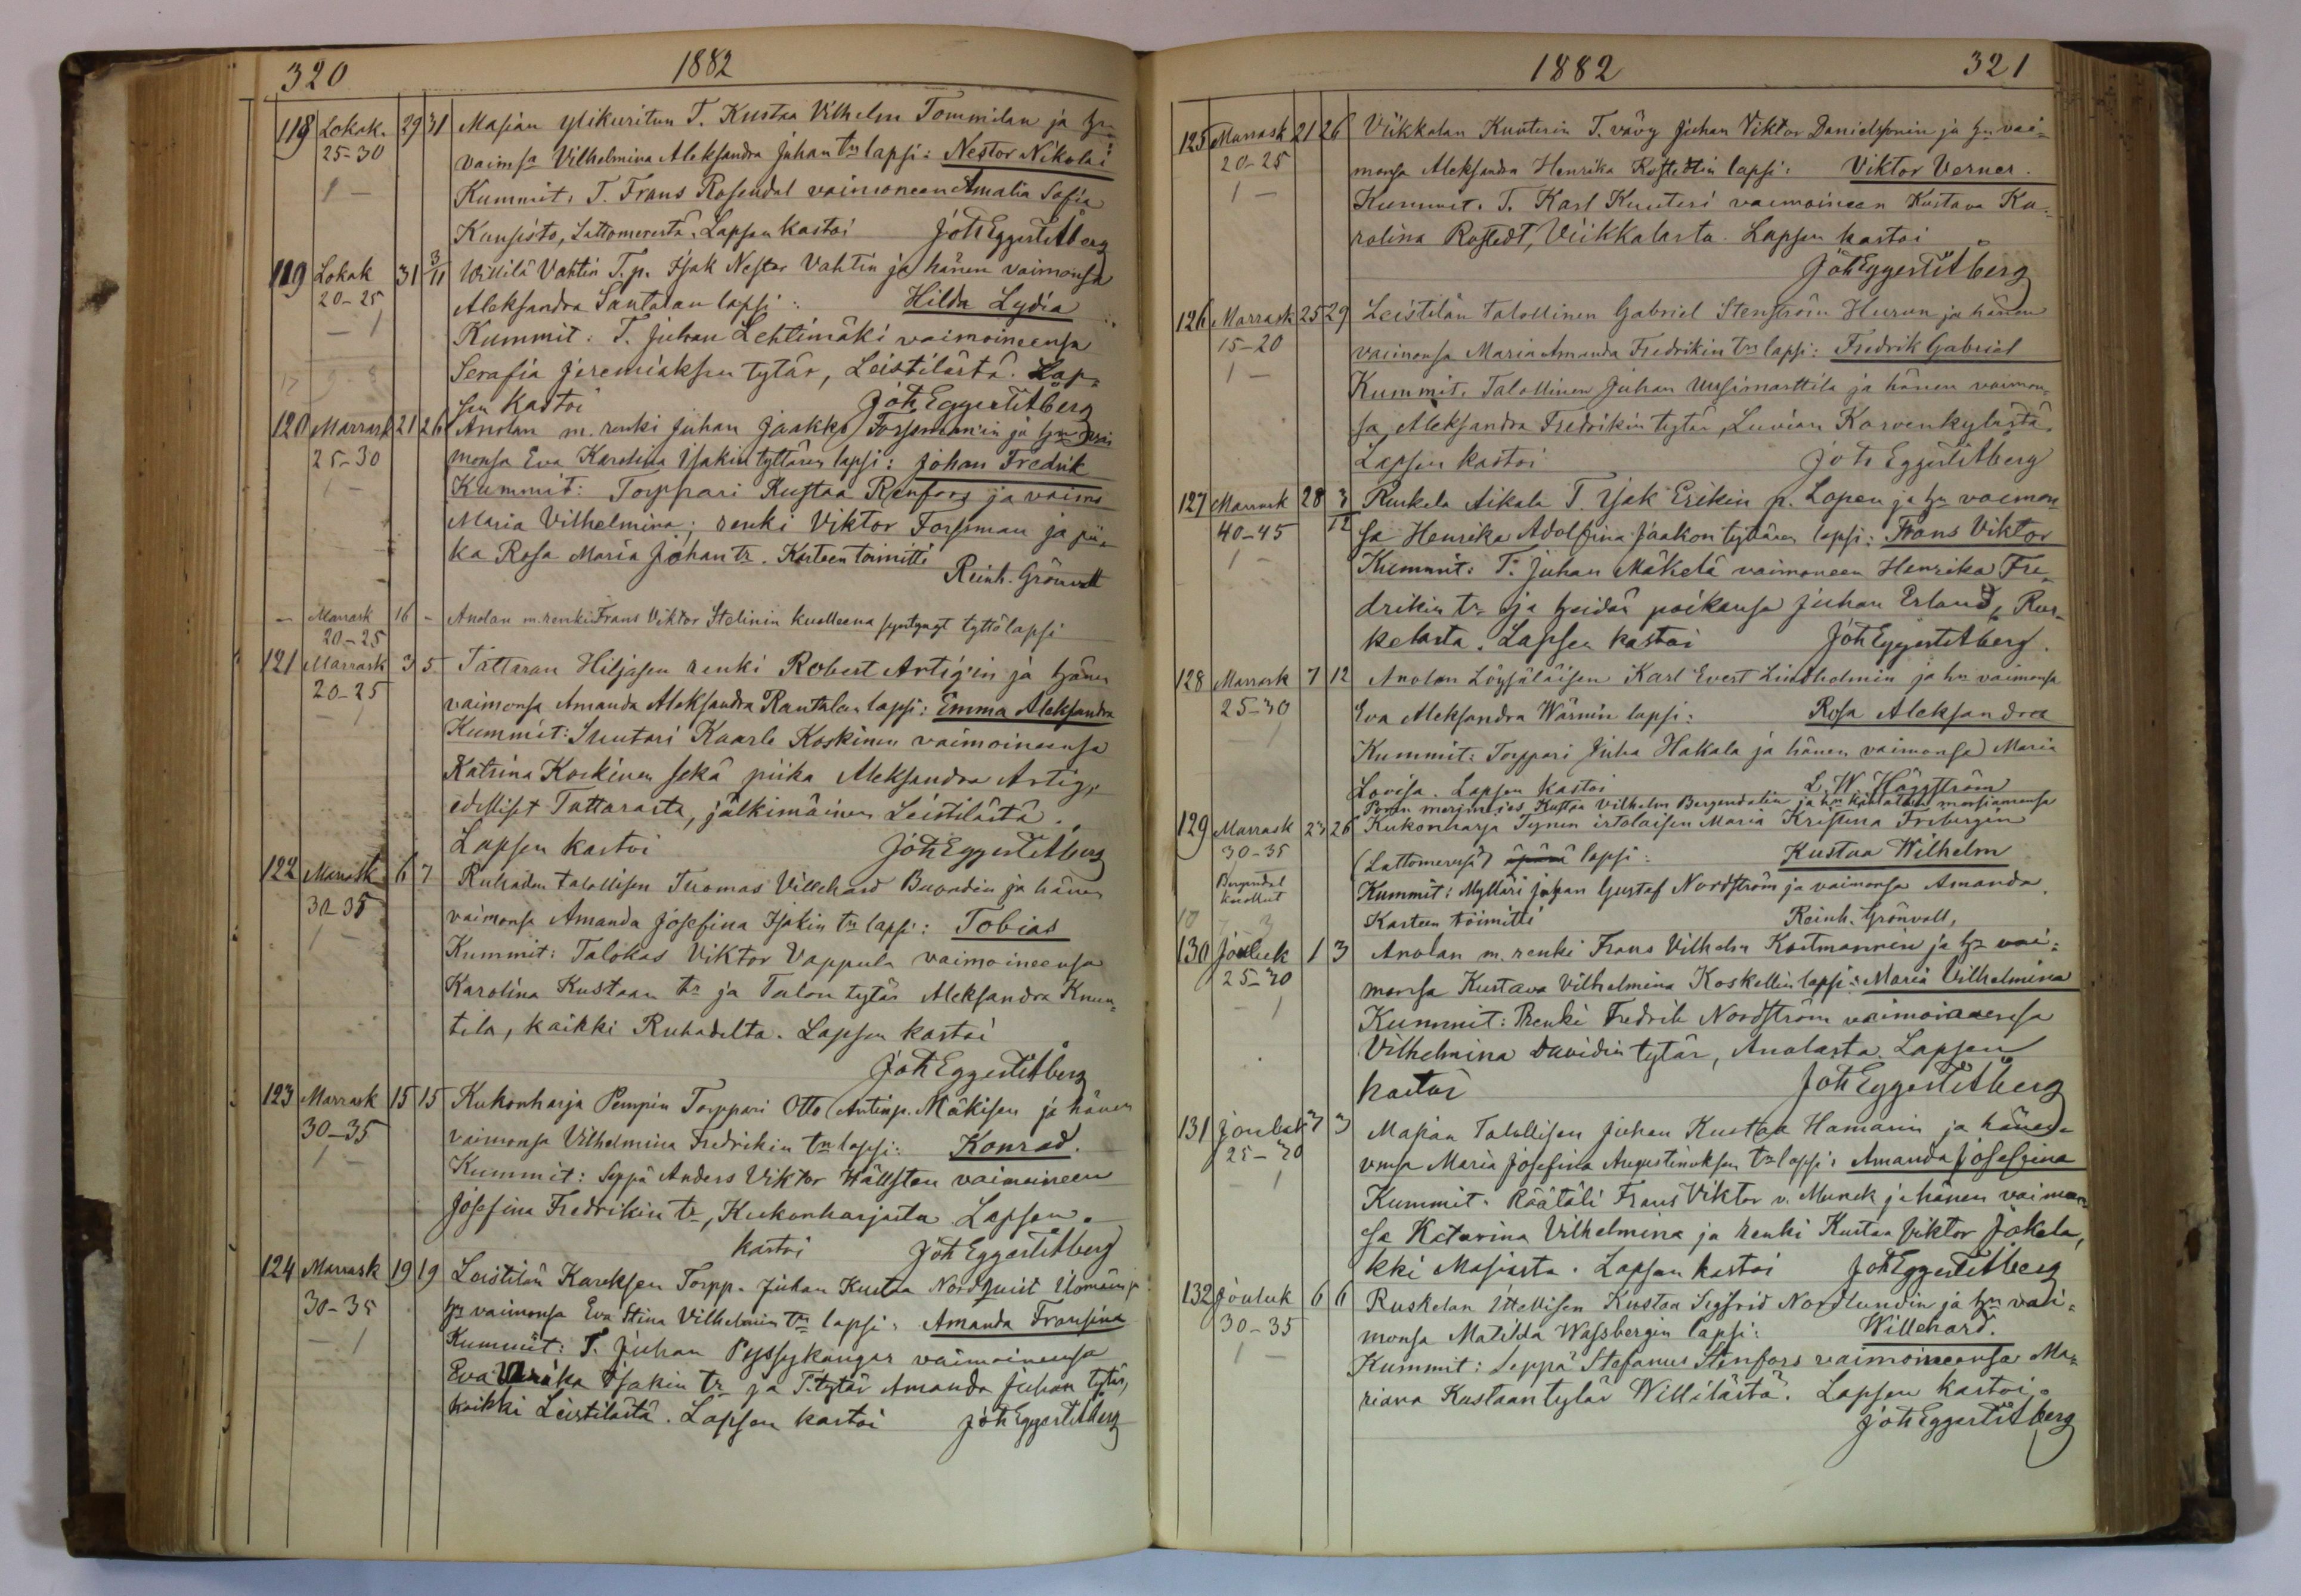 320
1882
118 Lokak. 29 31 Masian ylikuritun T. Kustaa Vilhelm Tommilan ja hn
25-30 vaimsa Vilhelmina Aleksandra Juhan tn lapsi: Nestor Nikolai
1 - Kummit: T. Frans Rosendal vaimoneen Amalia Sofia
Kansisto, Lattomerestä. Lapsen kastoi Joh Eggert Åberg
119 Lokak 31 3/11 Willilä Vahtin T.p. Isak Nestor Vahtin ja hänen vaimonsa
20-25 Aleksandra Santalan lapsi: Hilda Lydia
- 1 Kummit: T. Juhan Lehtimäki vaimoineensa
Serafia Jeremiaksen tytär, Leistilästä. Lap-
sen kastoi Joh Eggert Åberg
120 Marrask 21 26 Anolan m. renki Juhan Jaakko Forssman'in ja hn vai
25-30 monsa Eva Karolina Isakin tyttären lapsi: Johan Fredrik
1 - Kummit: Torppari Kustaa Renfors ja vaimo
Maria Vilhelmina; renki Viktor Forssman ja pii-
ka Rosa Maria Johan tr. Kasteen toimitti
Reinh. Grönvall
- Marrask 16 - Anolan m. renki Frans Viktor Stelinin kuolleena syntynyt tyttölapsi
20-25
121 Marrask 3 5 Tattaran Hiljasen renki Robert Artig'in ja hänen
20-25 vaimonsa Amanda Aleksandra Rantalan lapsi: Emma Aleksandra
- 1 Kummit: Suutari Kaarle Koskinen vaimoineensa
Katrina Koskinen sekä piika Aleksandra Artig,
edelliset Tattarasta, jälkimäinen Leistilästä.
Lapsen kastoi Joh Eggert Åberg
122 Marrask 6 7 Ruhadan talollisen Thomas Villehard Buvodin ja hänen
30-35 vaimonsa Amanda Josefina Isakin tn lapsi: Tobias
1 - Kummit: Talokas Viktor Vappula vaimoineensa
Karolina Kustaan tr ja Talon tytär Aleksandra Knuu-
tila, kaikki Ruhadelta. Lapsen kastoi
Joh Eggert Åberg
123 Marrask 15 15 Kukonharja Pempin Torppari Otto Antinp. Mäkisen ja hänen
30-35 vaimonsa Vilhelmina Fredrikin tn lapsi: Konrad.
1 - Kummit: Seppä Anders Viktor Hällsten vaimoineen
Josefina Fredrikin tr, Kukonharjasta Lapsen
kastoi Joh Eggert Åberg
124 Marrask 19 19 Leistilän Kareksen Torpp. Juhan Kustaa Nordquist Ilomäen ja
30-35 hn vaimonsa Eva Stina Vilhelmin tn lapsi: Amanda Fransina
- 1 Kummit: T. Juhan Pyssykangas vaimoineensa
Eva Ulrika Isakin tr ja T. tytär Amanda Juhan tytär,
kaikki Leistilästä. Lapsen kastoi Joh Eggert Åberg
1882
321
125 Marrask 21 26 Viikkalan Kuuterin T. vävy Juhan Viktor Danielssonin ja hn vai-
20-25 monsa Aleksandra Henrika Rostedtin lapsi: Viktor Verner.
1 - Kummit. T. Karl Kuuteri vaimoineen Kustava Ka-
rolina Rostedt, Viikkalasta. Lapsen kastoi
Joh Eggert Åberg
126 Marrask 25 29 Leistilän Talollinen Gabriel Stenström Hurun ja hänen
15-20 vaimonsa Maria Amanda Fredrikin tn lapsi: Fredrik Gabriel
1 - Kummit. Talollinen Juhan Uusimarttila ja hänen vaimon-
sa Aleksandra Fredrikin tytär, Luvian Korvenkylästä.
Lapsen kastoi Joh Eggert Åberg
127 Marrask 28 3/12 Ruskela Aikala T. Isak Erikin p. Lopen ja hn vaimon
40-45 sa Henrika Adolfina Jaakon tyttären lapsi: Frans Viktor
1 - Kummit: T. Juhan Mäkelä vaimoneen Henrika Fre-
drikin tr ja heidän poikansa Juhan Erland, Rus-
kelasta. Lapsen kastoi Joh Eggert Åberg.
128 Marrask 7 12 Anolan Löysäläisen Karl Evert Lindholmin ja hn vaimonsa
25-30 Eva Aleksandra Wärnin lapsi: Rosa Aleksandra
- 1 Kummit: Torppari Juha Hakala ja hänen vaimonsa Maria
Lovisa. Lapsen kastoi L. W. Häggström
Porin merimies Kustaa Vilhelm Bergendalin ja hn kihlatun morsiamensa
129 Marrask 23 26 Kukonharja Tynin irtolaisen Maria Kristina Fribergin
30-35 (Lattomeressä) äpärä lapsi: Kustaa Wilhelm
Bergendal Kummit: Mylläri Johan Gustaf Nordström ja vaimonsa Amanda.
kuollut
Kasteen toimitti Reinh. Grönvall,
130 Jouluk 1 3 Anolan m. renki Frans Vilhelm Kostmannin ja hn vai-
25-30 monsa Kustava Vilhelmina Koskellin lapsi: Maria Vilhelmina
- 1 Kummit: Renki Fredrik Nordström vaimoineensa
Vilhelmina Davidin tytär, Anolasta. Lapsen
kastoi Joh Eggert Åberg
131 Jouluk 3 3 Masian Talollisen Juhan Kustaa Hamarin ja hänen
25-30 vmsa Maria Josefina Augustinuksen tn lapsi: Amanda Josefina
- 1 Kummit: Räätäli Frans Viktor v. Munck ja hänen vaimon-
sa Katarina Vilhelmina ja renki Kustaa Viktor Jokela,
kki Masiasta. Lapsen kastoi Joh Eggert Åberg
132 Jouluk 6 6 Ruskelan Itsellisen Kustaa Sigfrid Nordlundin ja hn vai-
30-35 monsa Matilda Wassbergin lapsi: Willehard.
1 - Kummit: Seppä Stefanus Stenfors vaimoineensa Ma-
riana Kustaan tytär Willilästä. Lapsen kastoi
Joh Eggert Åberg